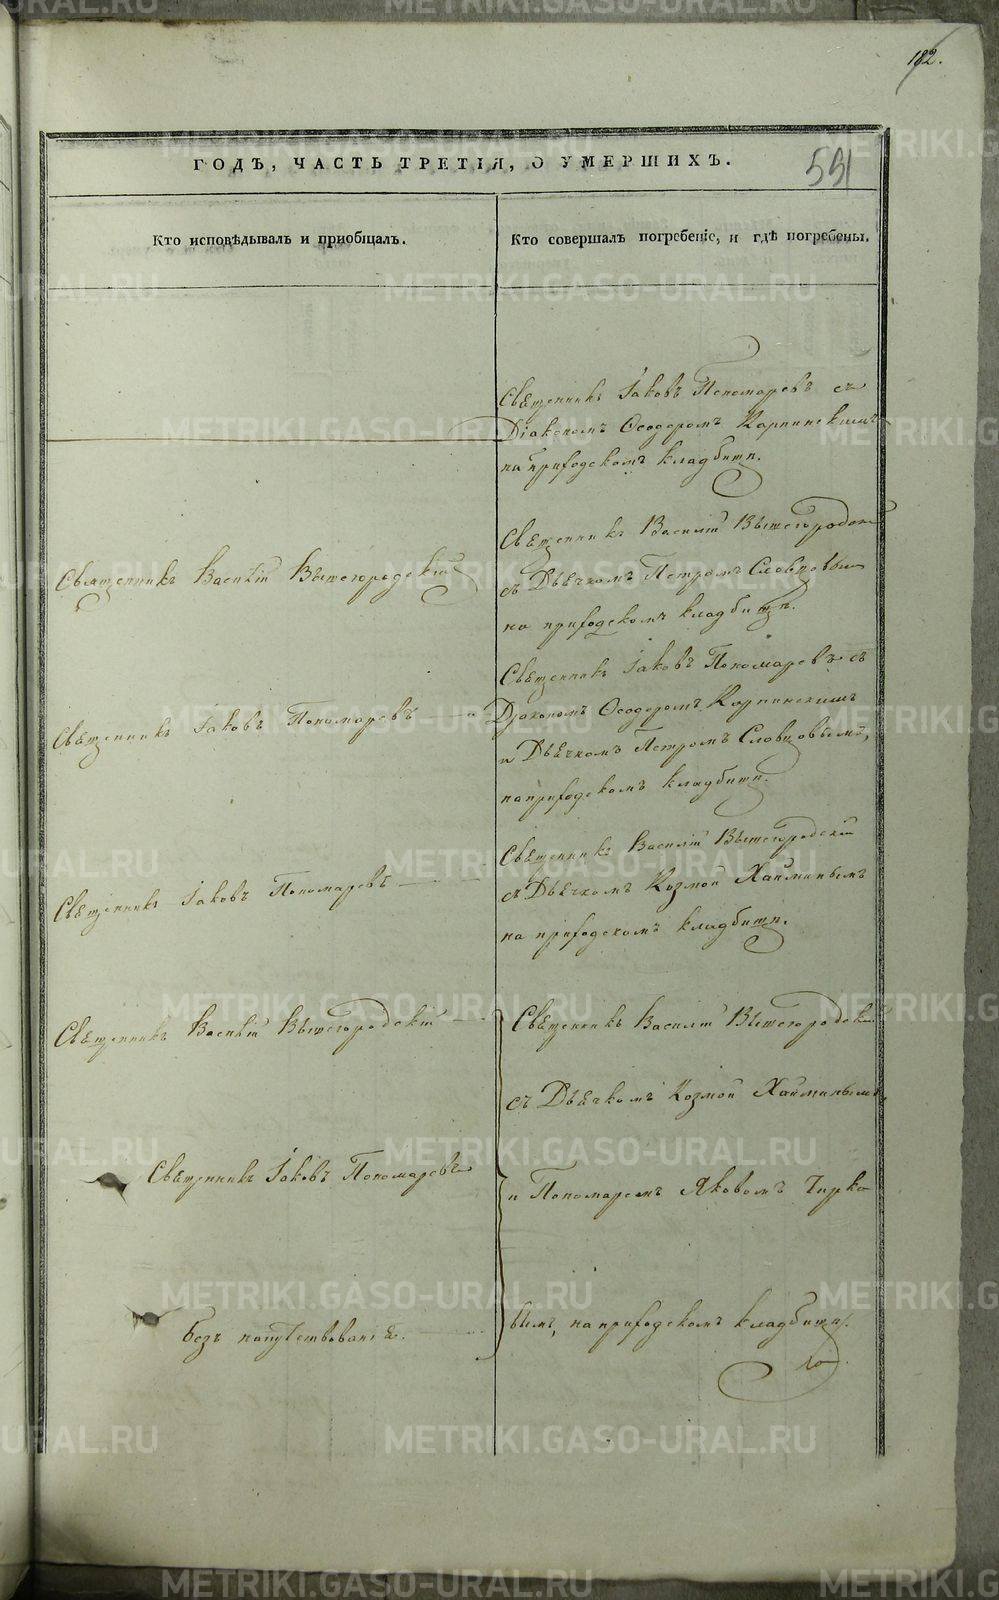 182.
ГОДЪ, ЧАСТЬ ТРЕТІЯ, О УМЕРШИХЪ.
591
Кто исповѣдывалъ и пріобщалъ.
Кто совершалъ погребеніе, и гдѣ погребены.
Священникъ Іаковъ Пономаревъ съ
Діакономъ Ѳеодоромъ Карпинскимъ
на приходскомъ кладбищѣ.
Священникъ Василій Вышегородскій
Священникъ Василій Вышегородскій
съ Дьячкомъ Петромъ Словцовымъ
на приходскомъ кладбищѣ.
Священникъ Іаковъ Пономаревъ
Священникъ Іаковъ Пономаревъ съ
Діакономъ Ѳеодоромъ Карпинскимъ
и Дьячкомъ Петромъ Словцовымъ,
на приходскомъ кладбищѣ.
Священникъ Іаковъ Пономаревъ
Священникъ Василій Вышегородскій
съ Дьячкомъ Козмой Хайминымъ
на приходскомъ кладбищѣ.
Священникъ Василій Вышегородскій
Священникъ Іаковъ Пономаревъ
Безъ напутствованія.
Священникъ Василій Вышегородскій
съ Дьячкомъ Козмой Хайминымъ,
и Пономаремъ Яковомъ Чирко
вымъ, на приходскомъ кладбищѣ.
METRIKI.GASO-URAL.RU